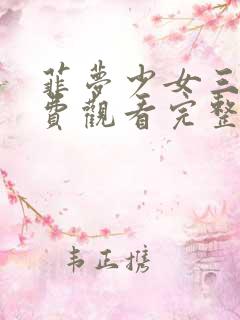 菲夢少女三
費觀看完整
韦正携